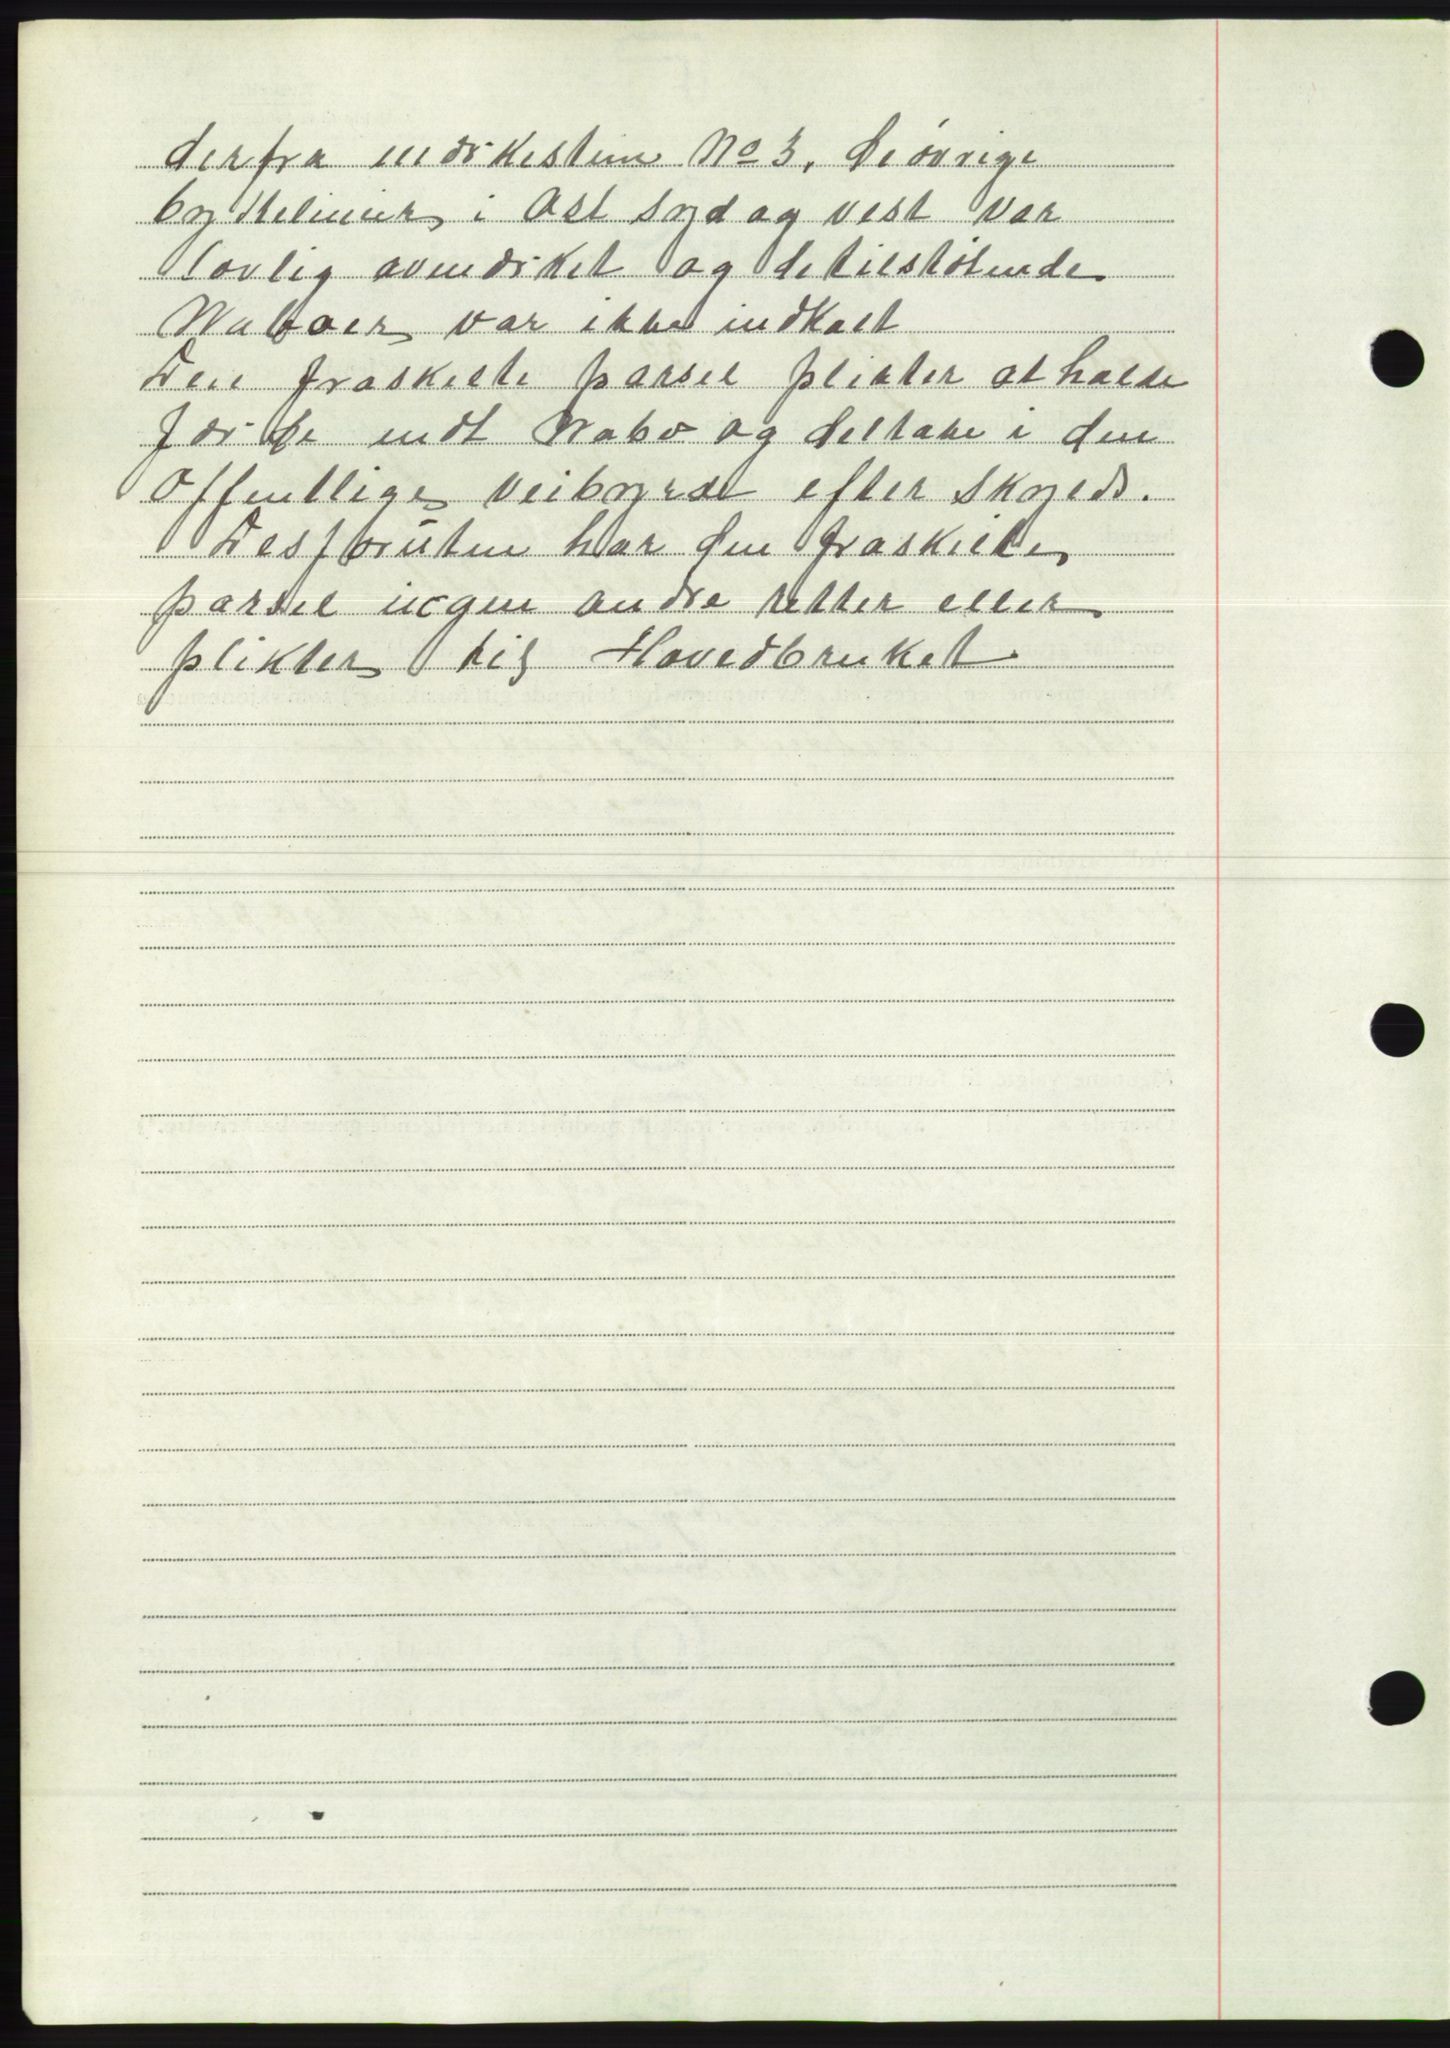 derfra mörkesten No 3. De övrige
byttelinier i Ost syd og vest var
lovlig avmörket og de tilstötende
Naboer var ikke indkalt
Den fraskilte parsel plikter at holde
gjærde mot Nabo og deltake i den
Offentlige veibyrde efter skyld.
Desforuten har den fraskilte
parsel ingen andre retter eller
plikter til Hovedbruket